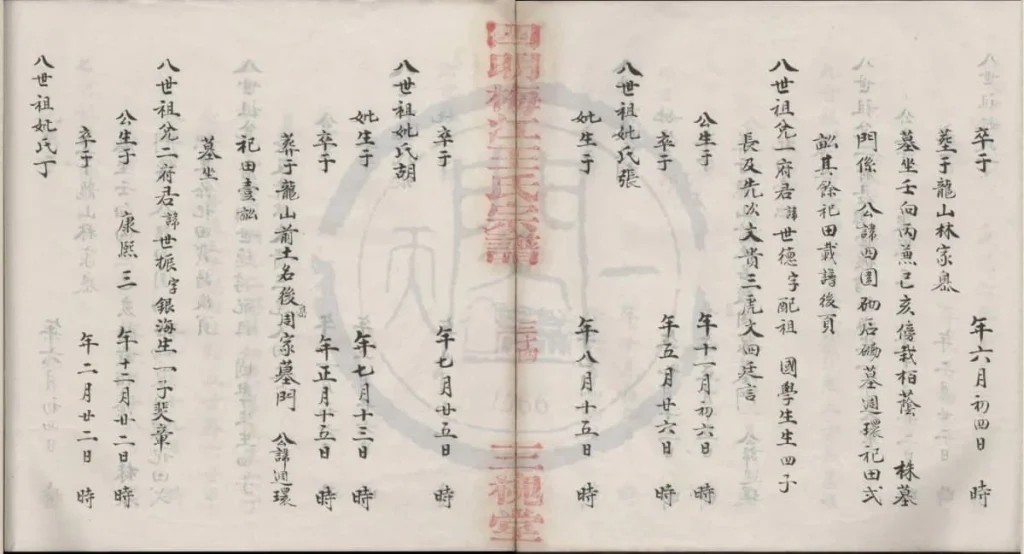 卒于 年六月初四日 時
塟于龍山林家嶴
墓坐壬向丙兼己亥傍栽栢蔭 株墓
門係 公諱四圍砌石磡墓週環祀田弍
訟其餘祀田載譜後頁
八世祖兊一府君諱世德字配祖 國學生生四子
長及先次文貴三虎文四廷言
公生于 年十一月初六日 時
卒于 年五月廿六日 時
八世祖妣氏張
妣生于 年八月十五日 時
四明梅江王氏宗譜
三槐堂
卒于 年七月廿五日 時
八世祖妣氏胡
妣生于 年七月十三日 時
卒于 年正月十五日 時
葬于龍山前土名後周家墓門 公諱週環
祀田壹訟
墓坐
八世祖兊二府君諱世振字銀海生一子斐章
公生于 康熙三 年十二月廿二日 時
卒于 年二月廿二日 時
八世祖妣氏丁